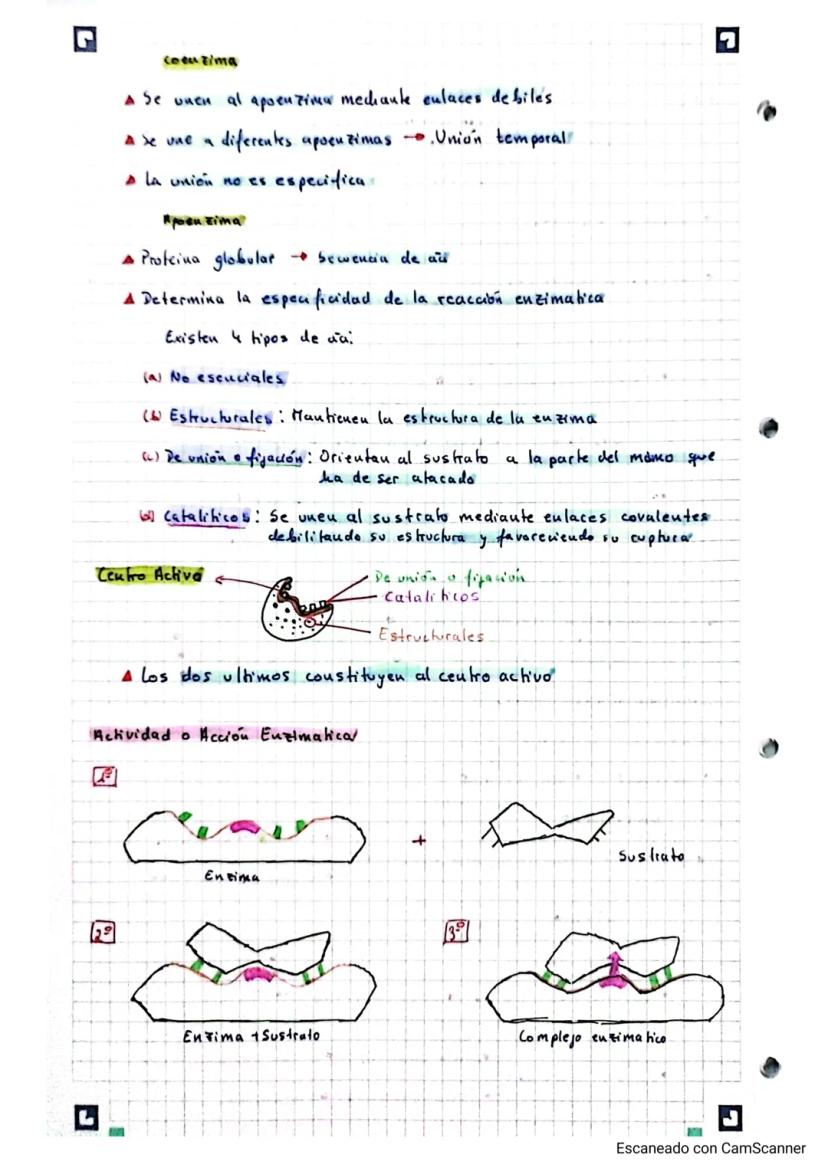 Coenzima
Se unen al apoenzima mediante enlaces debiles
Se une a diferentes apoenzimas → Unión temporal
La unión no es especifica
Apoenzima
Proteina globular → Secuencia de aa
Determina la especificidad de la reacción enzimatica
Existen 4 tipos de aa:
(a) No esenciales
(b) Estructurales: Mantienen la estructura de la enzima
(c) De unión o fijación: Orientan al sustrato a la parte del mismo que
ha de ser atacado
(d) Catalíticos: Se unen al sustrato mediante enlaces covalentes
debilitando su estructura y favoreciendo su ruptura
Centro Activo
De unión o fijación
Catalíticos
Estructurales
Los dos ultimos constituyen al centro activo
Actividad o Acción Enzimatica
1º
+
Enzima
Sustrato
2º
3º
Enzima + Sustrato
Complejo enzimatico
Escaneado con CamScanner